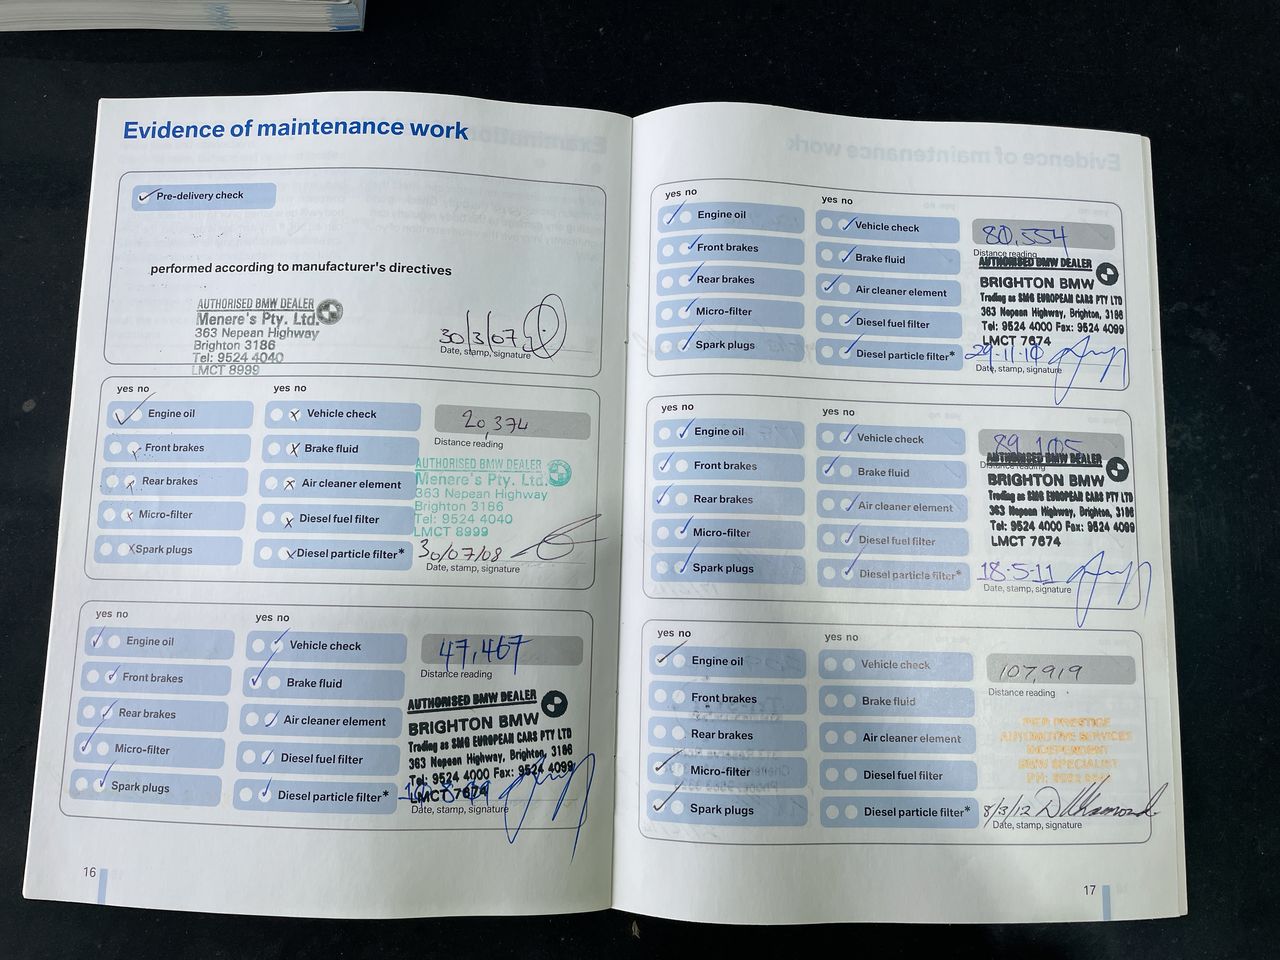 Evidence of maintenance work
Pre-delivery check
performed according to manufacturer's directives
AUTHORISED BMW DEALER
Menere's Pty. Ltd.
363 Nepean Highway
Brighton 3186
Tel: 9524 4040
LMCT 8999
30/3/07
Date, stamp, signature
yes no
yes no
Engine oil
Vehicle check
20,374
Distance reading
Front brakes
Brake fluid
Rear brakes
Air cleaner element
Micro-filter
Diesel fuel filter
Spark plugs
Diesel particle filter*
AUTHORISED BMW DEALER
Menere's Pty. Ltd.
363 Nepean Highway
Brighton 3186
Tel: 9524 4040
LMCT 8999
30/07/08
Date, stamp, signature
yes no
yes no
Engine oil
Vehicle check
47,467
Distance reading
Front brakes
Brake fluid
Rear brakes
Air cleaner element
Micro-filter
Diesel fuel filter
Spark plugs
Diesel particle filter*
AUTHORISED BMW DEALER
BRIGHTON BMW
Trading as SMG EUROPEAN CARS PTY LTD
363 Nepean Highway, Brighton, 3186
Tel: 9524 4000 Fax: 9524 4099
LMCT 7674
Date, stamp, signature
16
yes no
yes no
Engine oil
Vehicle check
80,554
Distance reading
Front brakes
Brake fluid
Rear brakes
Air cleaner element
Micro-filter
Diesel fuel filter
Spark plugs
Diesel particle filter*
AUTHORISED BMW DEALER
BRIGHTON BMW
Trading as SMG EUROPEAN CARS PTY LTD
363 Nepean Highway, Brighton, 3186
Tel: 9524 4000 Fax: 9524 4099
LMCT 7674
29.11.10
Date, stamp, signature
yes no
yes no
Engine oil
Vehicle check
89,105
Distance reading
Front brakes
Brake fluid
Rear brakes
Air cleaner element
Micro-filter
Diesel fuel filter
Spark plugs
Diesel particle filter*
AUTHORISED BMW DEALER
BRIGHTON BMW
Trading as SMG EUROPEAN CARS PTY LTD
363 Nepean Highway, Brighton, 3186
Tel: 9524 4000 Fax: 9524 4099
LMCT 7674
18.5.11
Date, stamp, signature
yes no
yes no
Engine oil
Vehicle check
107,919
Distance reading
Front brakes
Brake fluid
Rear brakes
Air cleaner element
Micro-filter
Diesel fuel filter
Spark plugs
Diesel particle filter*
PRESTIGE
AUTOMOTIVE SERVICES
INDEPENDENT
BMW SPECIALIST
8/3/12
Date, stamp, signature
17